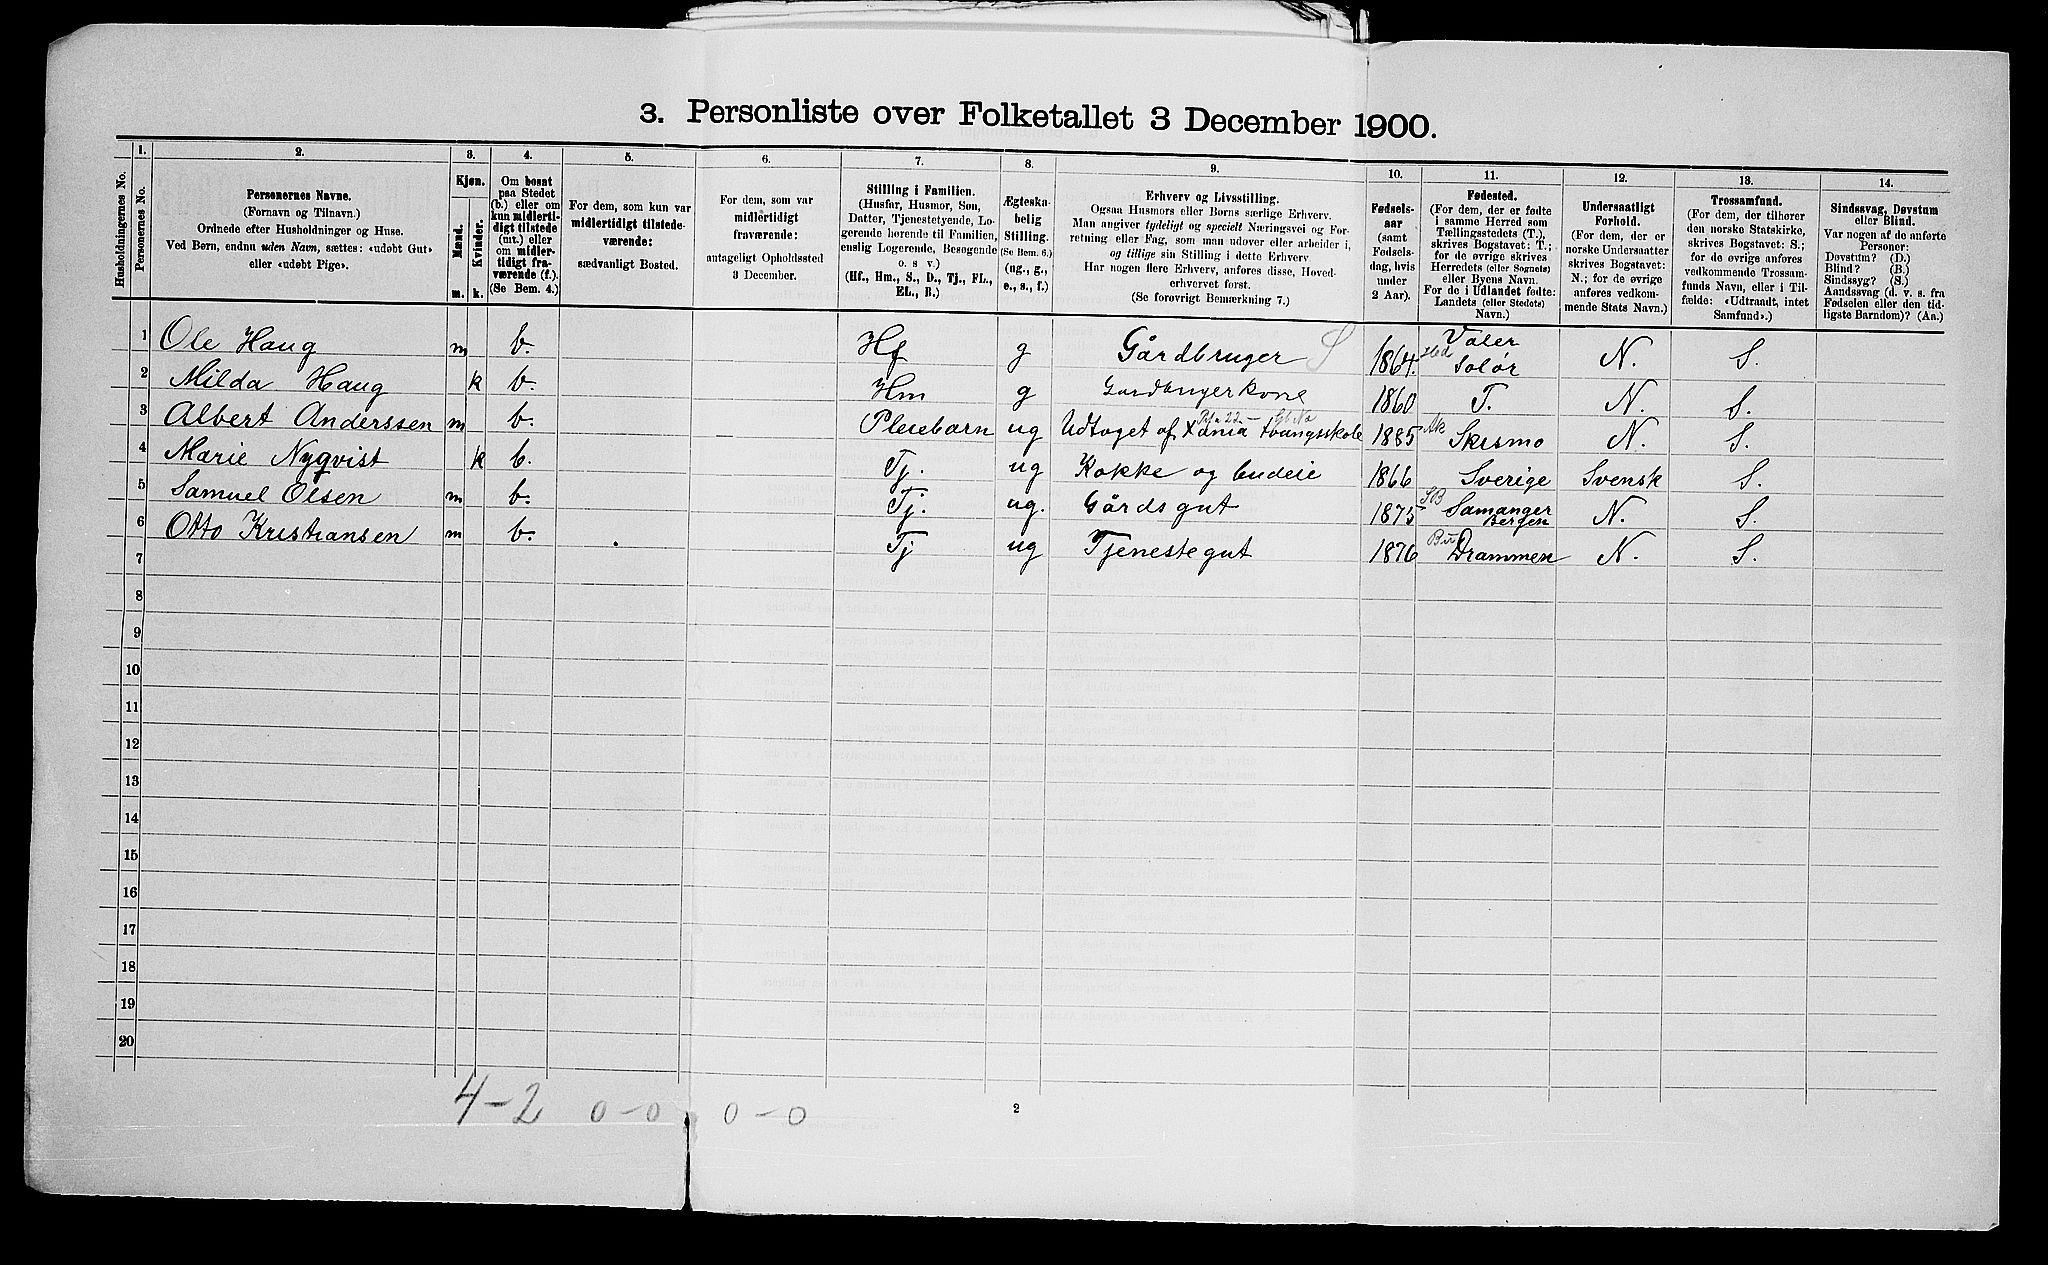 3. Personliste over Folketallet 3 December 1900.
Husholdningernes No.
1.
Personernes No.
2.
Personernes Navne.
(Fornavn og Tilnavn.)
Ordnede efter Husholdninger og Huse.
Ved Børn, endnu uden Navn, sættes: «udøbt Gut»
eller «udøbt Pige».
3.
Kjøn.
Mænd.
Kvinder.
m.
k.
4.
Om bosat
paa Stedet
(b.) eller om
kun midlerti-
digt tilstede
(mt.) eller
om midler-
tidigt fra-
værende (f.).
(Se Bem. 4.)
5.
For dem, som kun var
midlertidigt tilstede-
værende:
sædvanligt Bosted.
6.
For dem, som var
midlertidigt
fraværende:
antageligt Opholdssted
3 December.
7.
Stilling i Familien.
(Husfar, Husmor, Søn,
Datter, Tjenestetyende, Lo-
gerende hørende til Familien,
enslig Logerende, Besøgende
o. s. v.)
(Hf., Hm., S., D., Tj., FL.,
EL., B.)
8.
Ægteska-
belig
Stilling.
(Se Bem. 6.)
(ug., g.,
e., s., f.)
9.
Erhverv og Livsstilling.
Ogsaa Husmors eller Børns særlige Erhverv.
Man angiver tydeligt og specielt Næringsvei og For-
retning eller Fag, som man udøver eller arbeider i,
og tillige sin Stilling i dette Erhverv
Har nogen flere Erhverv, anføres disse, Hoved-
erhvervet først.
(Se forøvrigt Bemærkning 7.)
10.
Fødsels-
aar
(samt
Fødsels-
dag, hvis
under
2 Aar).
11.
Fødested.
(For dem, der er fødte
i samme Herred som
Tællingsstedets (T.),
skrives Bogstavet: T.;
for de øvrige skrives
Herredets (eller Sognets)
eller Byens Navn.
For de i Udlandet fødte:
Landets (eller Stedets)
Navn.)
12.
Undersaatligt
Forhold.
(For dem, der er
norske Undersaatter
skrives Bogstavet:
N.; for de øvrige
anføres vedkom-
mende Stats Navn.)
13.
Trossamfund.
(For dem, der tilhører
den norske Statskirke,
skrives Bogstavet: S.;
for de øvrige anføres
vedkommende Trossam-
funds Navn, eller i Til-
fælde: «Udtraadt, intet
Samfund».)
14.
Sindssvag, Døvstum
eller Blind.
Var nogen af de anførte
Personer:
Døvstum? (D.)
Blind? (B.)
Sindssyg? (S.)
Aandssvag (d. v. s. fra
Fødselen eller den tid-
ligste Barndom)? (Aa.)
1 Ole Haug m b. Hf g Gårdbruger S 1864. Hed Valer Solør N. S.
2 Milda Haug k b. Hm g Gardbrugerkone 1860 T. N. S.
3 Albert Anderssen m b. Pleiebarn ug Udtaget af Xania tvangsskole 1885 Ak Skismo N. S.
4 Marie Nyqvist k b. Tj. ug Kokke og budeie 1866 Sverige Svensk S.
5 Samuel Olsen m b. Tj. ug. Gårdsgut 1875 SB Samanger Bergen N. S.
6 Otto Kristiansen m b. Tj ug Tjenestegut 1876 Bu Drammen N. S.
7
8
9
10
11
12
13
14
15
16
17
18
19
20
4-2 0-0 0-0
2